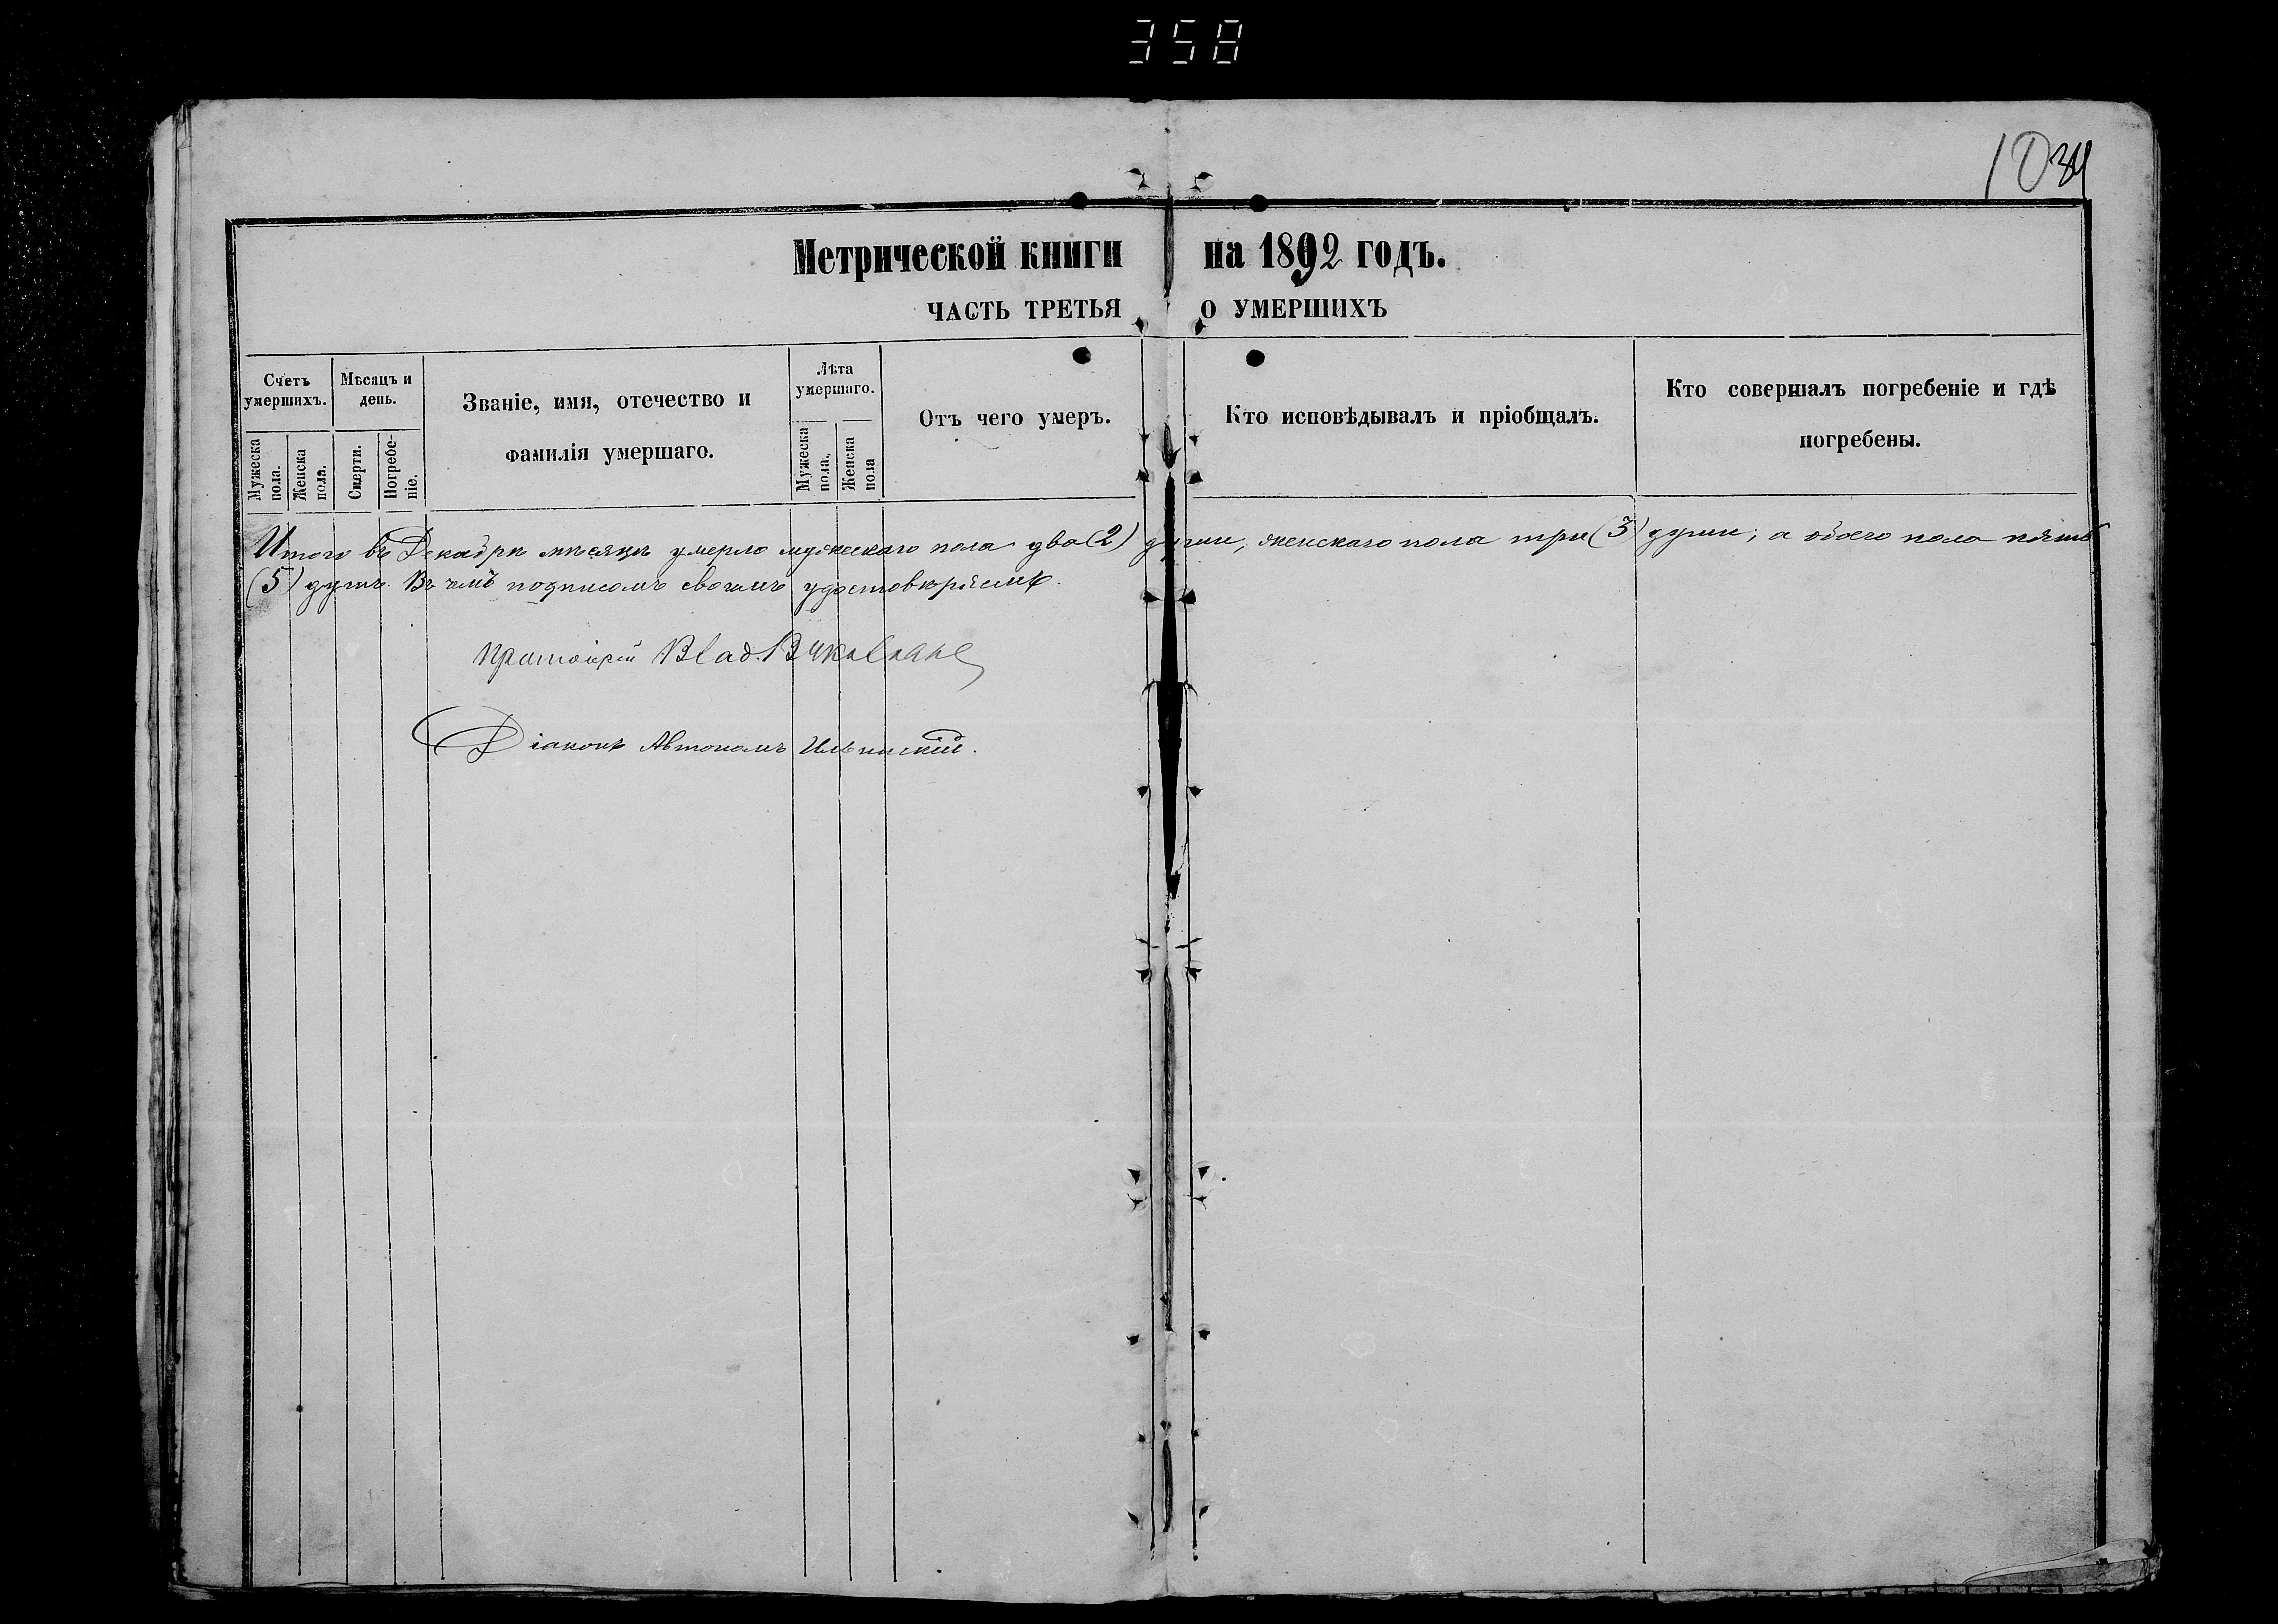 358
1034
Метрической книги на 1892 годъ.
ЧАСТЬ ТРЕТЬЯ О УМЕРШИХЪ
Счетъ умершихъ.
Мѣсяцъ и день.
Званіе, имя, отечество и фамилія умершаго.
Лѣта умершаго.
Отъ чего умеръ.
Кто исповѣдывалъ и пріобщалъ.
Кто совершалъ погребеніе и гдѣ погребены.
Мужеска пола.
Женска пола.
Смерти.
Погребе-ніе.
Мужеска пола,
Женска пола
Итого въ Декабрѣ мѣсяцѣ умерло мужескаго пола два (2) души, женскаго пола три (3) души, а обоего пола пять
(5) душъ. Въ чемъ подписомъ своимъ удостовѣряемъ.
Протоіерей Влад.
Діаконъ Автономъ Ильинскій.